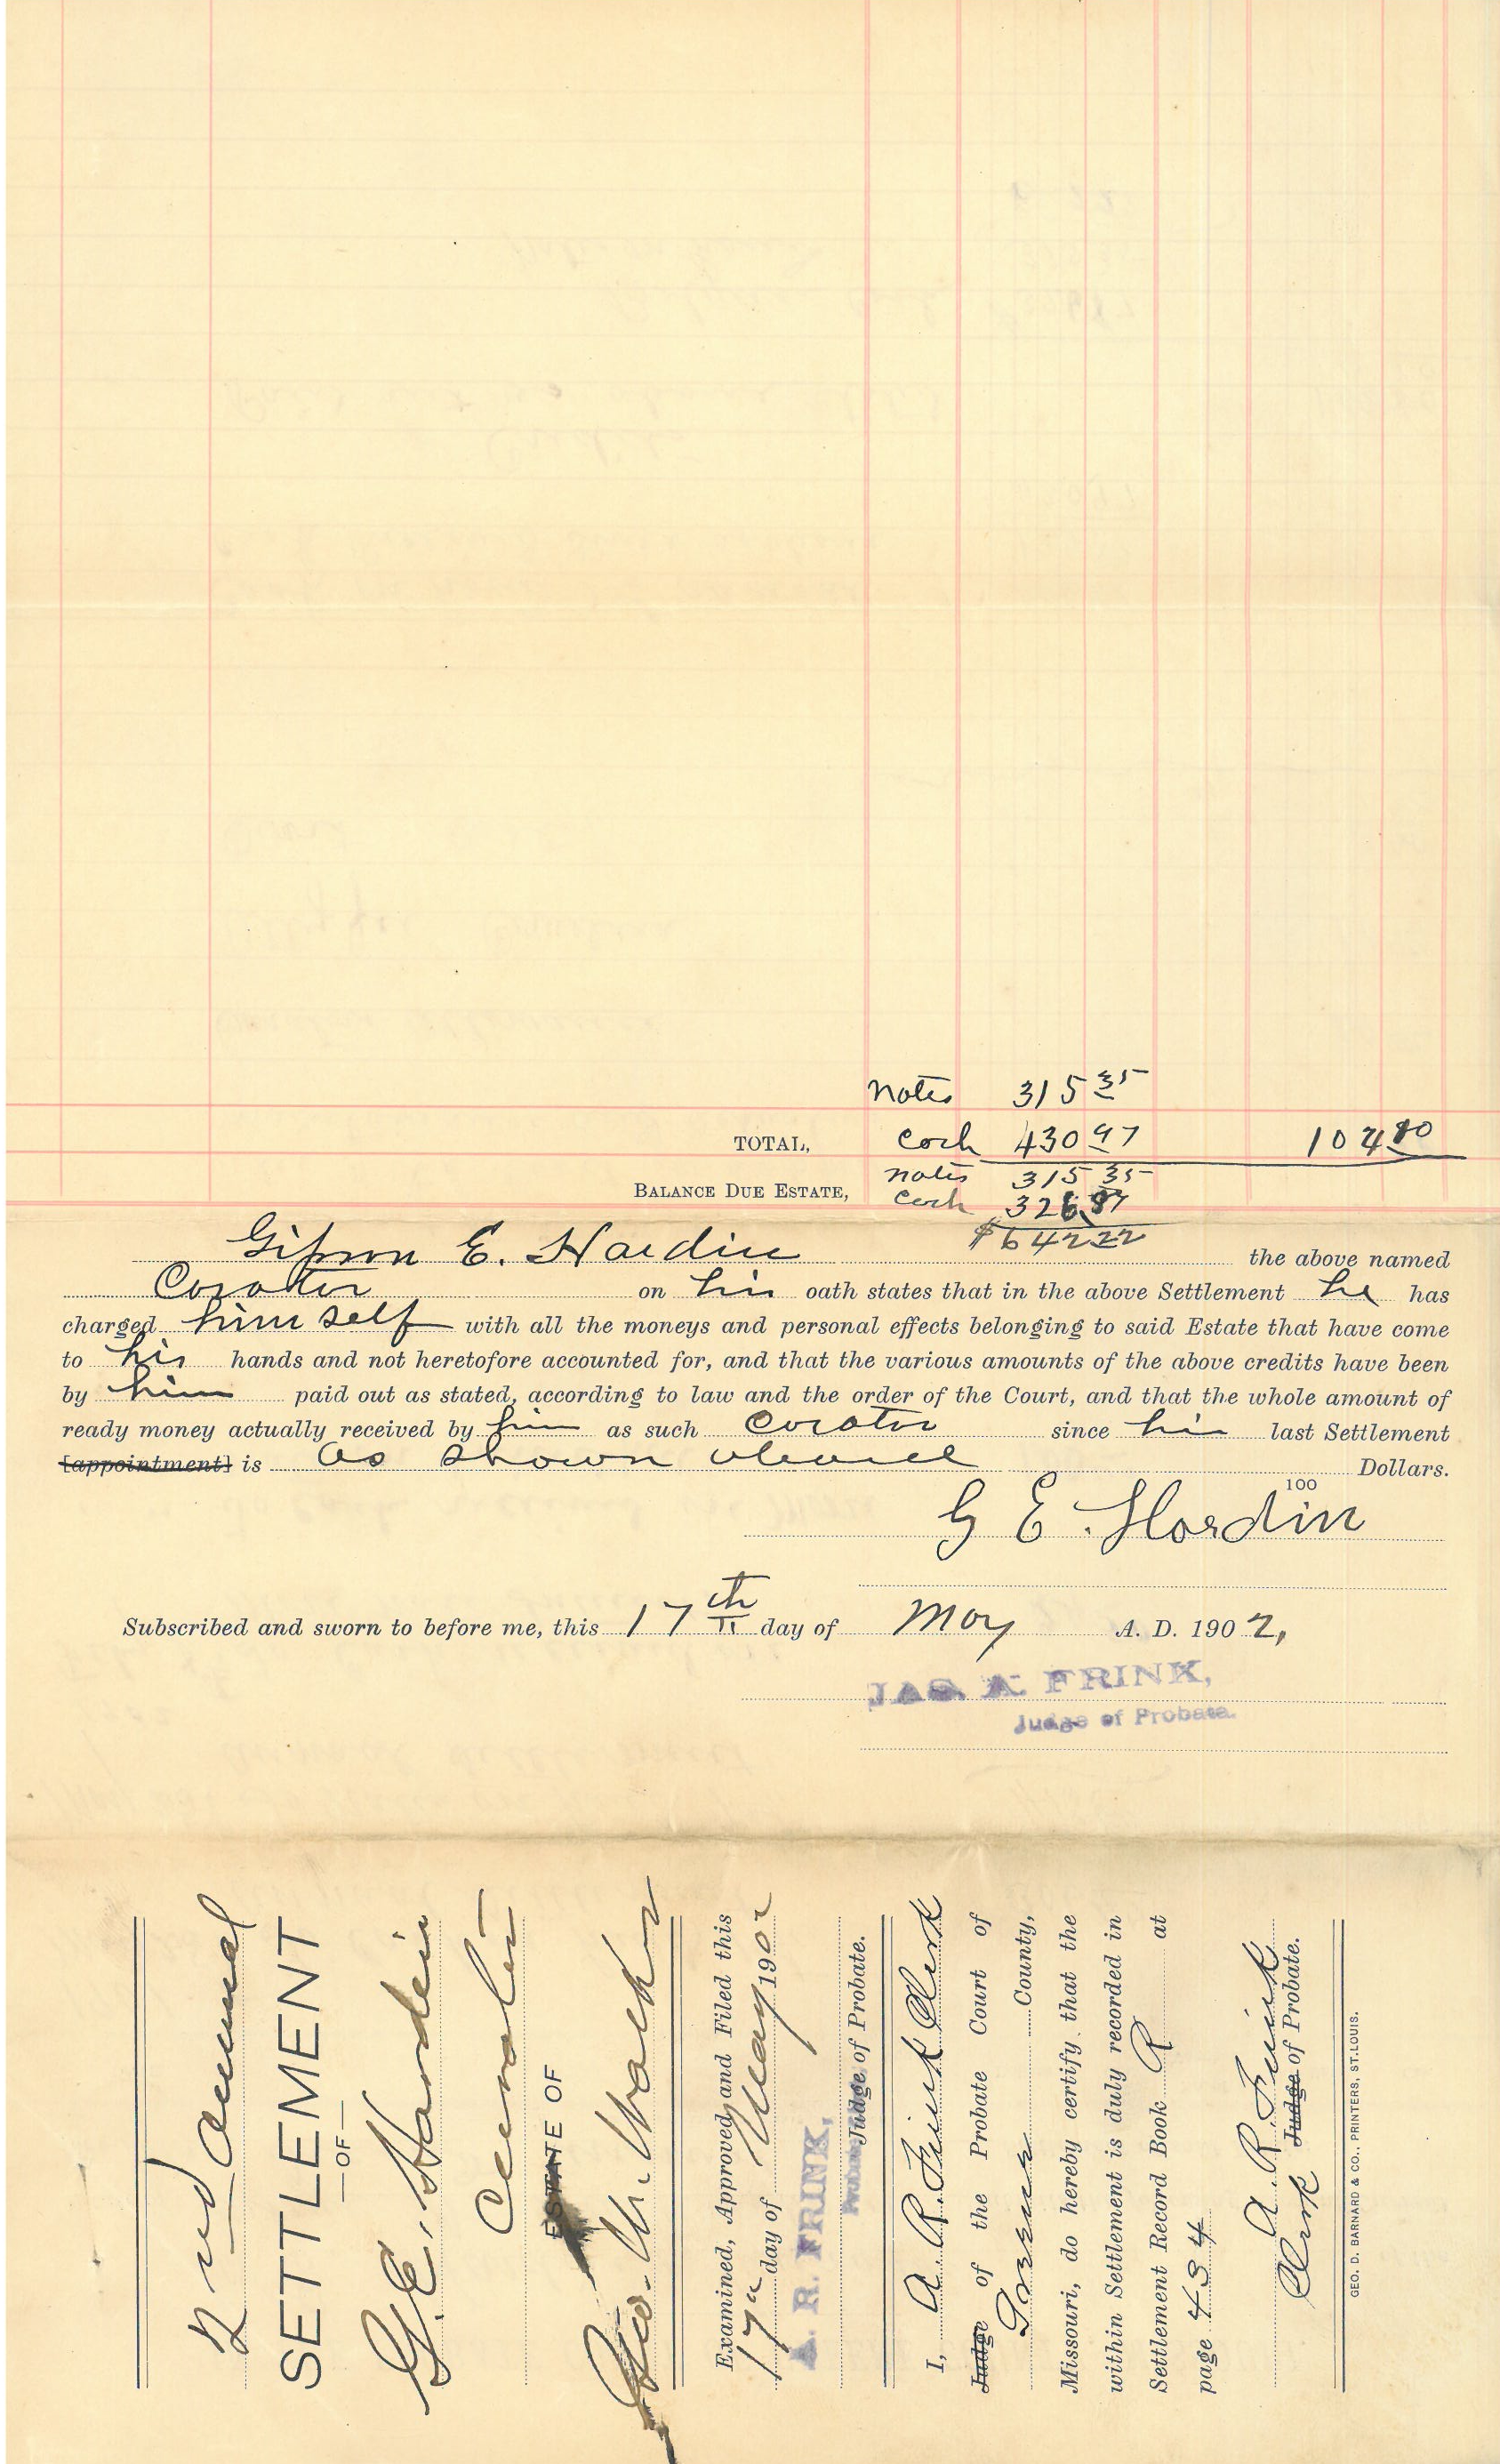 Notes 315 35
TOTAL, Cash 430 97 104 80
Notes 315 35
BALANCE DUE ESTATE, Cash 326 87
$642 22
Gipson E. Hardin the above named
Corator on his oath states that in the above Settlement he has
charged him self with all the moneys and personal effects belonging to said Estate that have come
to his hands and not heretofore accounted for, and that the various amounts of the above credits have been
by him paid out as stated, according to law and the order of the Court, and that the whole amount of
ready money actually received by him as such Corator since his last Settlement
[appointment] is as shown above Dollars.
100
G E. Hardin
Subscribed and sworn to before me, this 17th day of May A. D. 1902,
JAS. A. FRINK,
Judge of Probate.
2nd Annual
SETTLEMENT
—OF—
G. E. Hardin
Curator
ESTATE OF
Geo. W. Walker
Examined, Approved and Filed this
17" day of May 1902
A. R. FRINK,
Judge of Probate.
I, A. R. Frink Clerk
Judge of the Probate Court of
Greene County,
Missouri, do hereby certify that the
within Settlement is duly recorded in
Settlement Record Book R at
page 434
A. R. Frink
Clerk Judge of Probate.
GEO. D. BARNARD & CO., PRINTERS, ST. LOUIS.